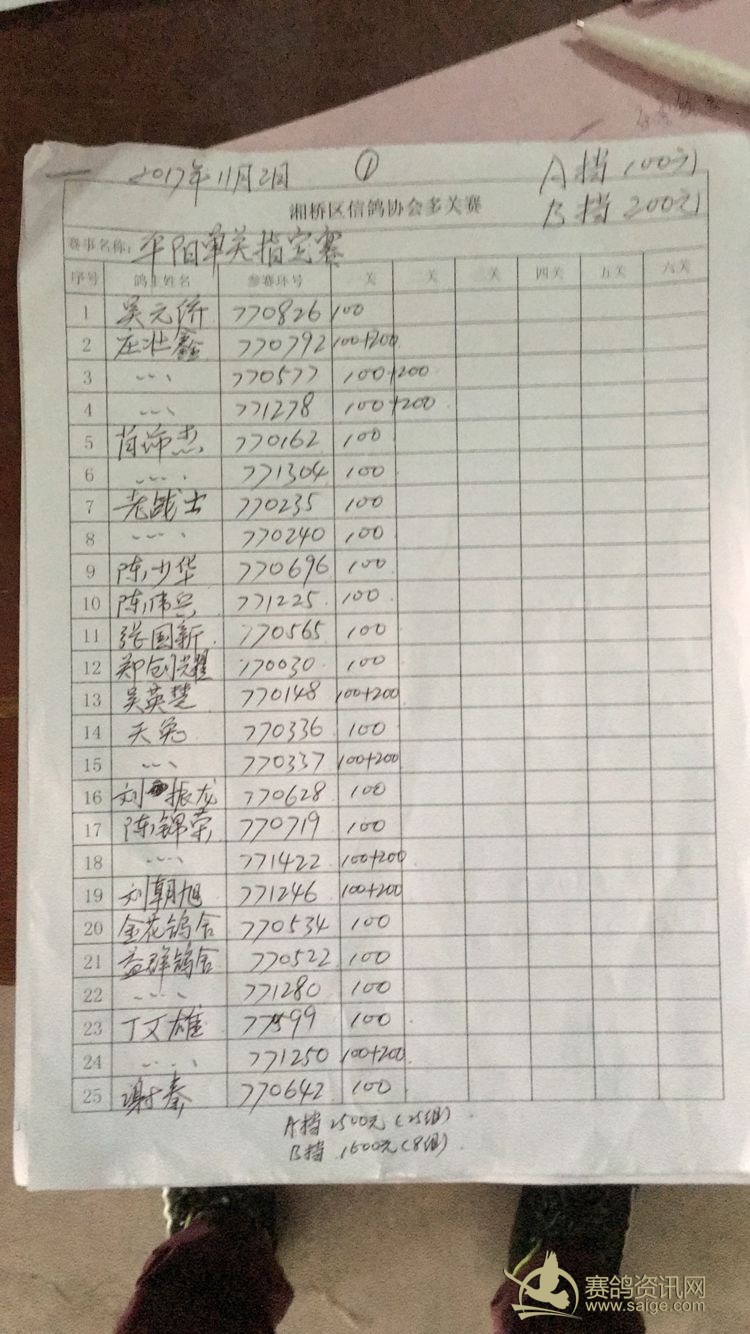 2017年11月2日 ① A档 100元
湘桥区信鸽协会多关赛 B档 200元
赛事名称: 平阳单关指定赛
序号 鸽主姓名 参赛环号 一关 二关 三关 四关 五关 六关
1 吴元侨 770826 100
2 庄壮鑫 770792 100+200
3 〃 770577 100+200
4 〃 771278 100+200
5 肖沛杰 770162 100
6 〃 771304 100
7 老战士 770235 100
8 〃 770240 100
9 陈少华 770696 100
10 陈伟兵 771225 100
11 张国新 770565 100
12 郑创耀 770030 100
13 吴英楚 770148 100+200
14 天兔 770336 100
15 〃 770337 100+200
16 刘振龙 770628 100
17 陈锦荣 770719 100
18 〃 771422 100+200
19 刘朝旭 771246 100+200
20 金花鸽舍 770534 100
21 益群鸽舍 770522 100
22 〃 771280 100
23 丁文雄 100
24 〃 771250 100+200
25 谢泰 770642 100
A档 2500元(25组)
B档 1600元(8组)
赛鸽资讯网
www.saige.com